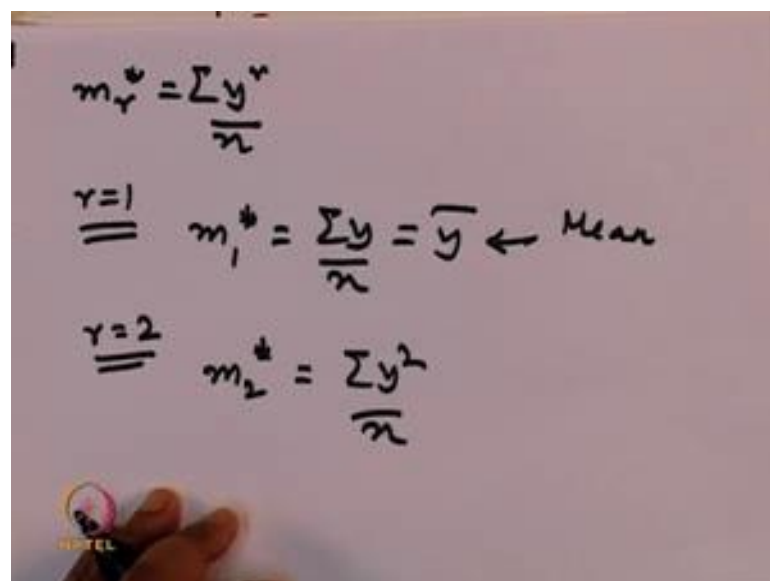 m_r* = Σy^r / n
r=1
m_1* = Σy / n = ȳ ← Mean
r=2
m_2* = Σy² / n
NPTEL